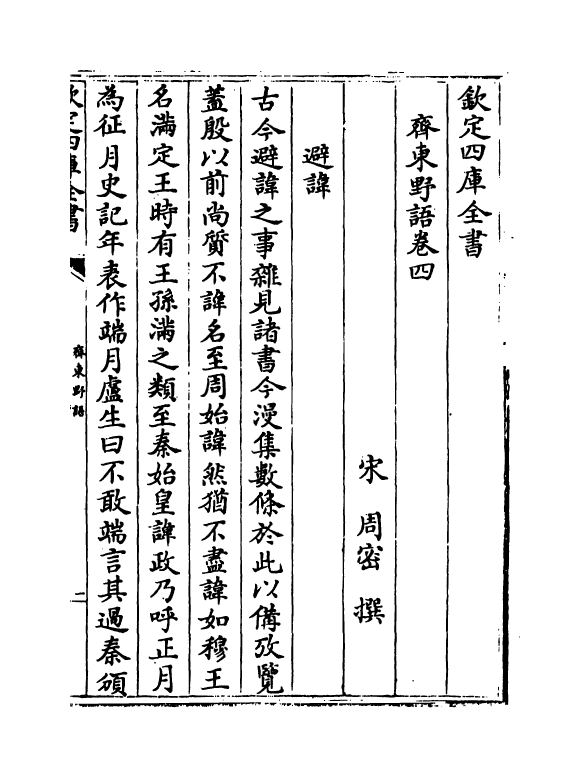 欽定四庫全書
齊東野語卷四
宋 周密 撰
避諱
古今避諱之事雜見諸書今漫集數條於此以備攷覽
蓋殷以前尚質不諱名至周始諱然猶不盡諱如穆王
名滿定王時有王孫滿之類至秦始皇諱政乃呼正月
為征月史記年表作端月盧生曰不敢端言其過秦頌
欽定四庫全書
齊東野語
二